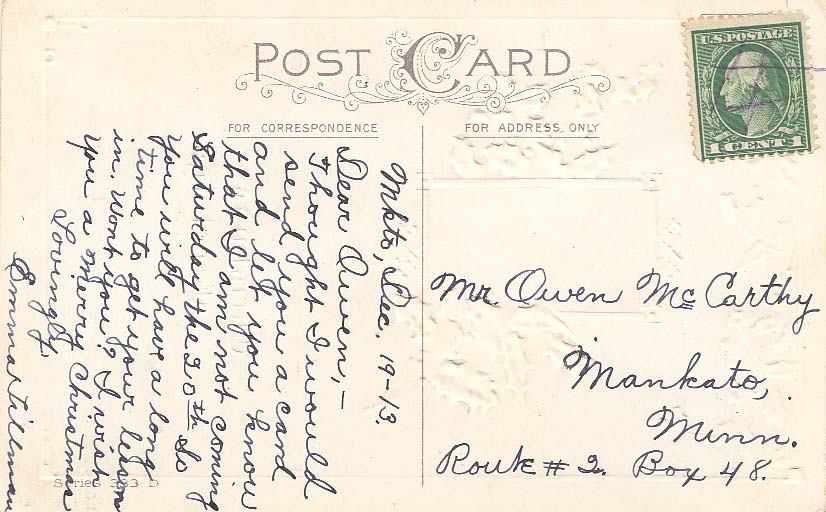 POST CARD
FOR CORRESPONDENCE
FOR ADDRESS ONLY
U.S. POSTAGE
1 CENT 1
Mkto, Dec. 19-13.
Dear Owen,-
Thought I would
send you a card
and let you know
that I am not coming
Saturday the 20th So
you will have a long
time to get your lesson
in. Wont you? I wish
you a merry Christmas
Lovingly,
Emma Tillman
Mr. Owen McCarthy
Mankato,
Minn.
Route # 2. Box 48.
Series 333 D